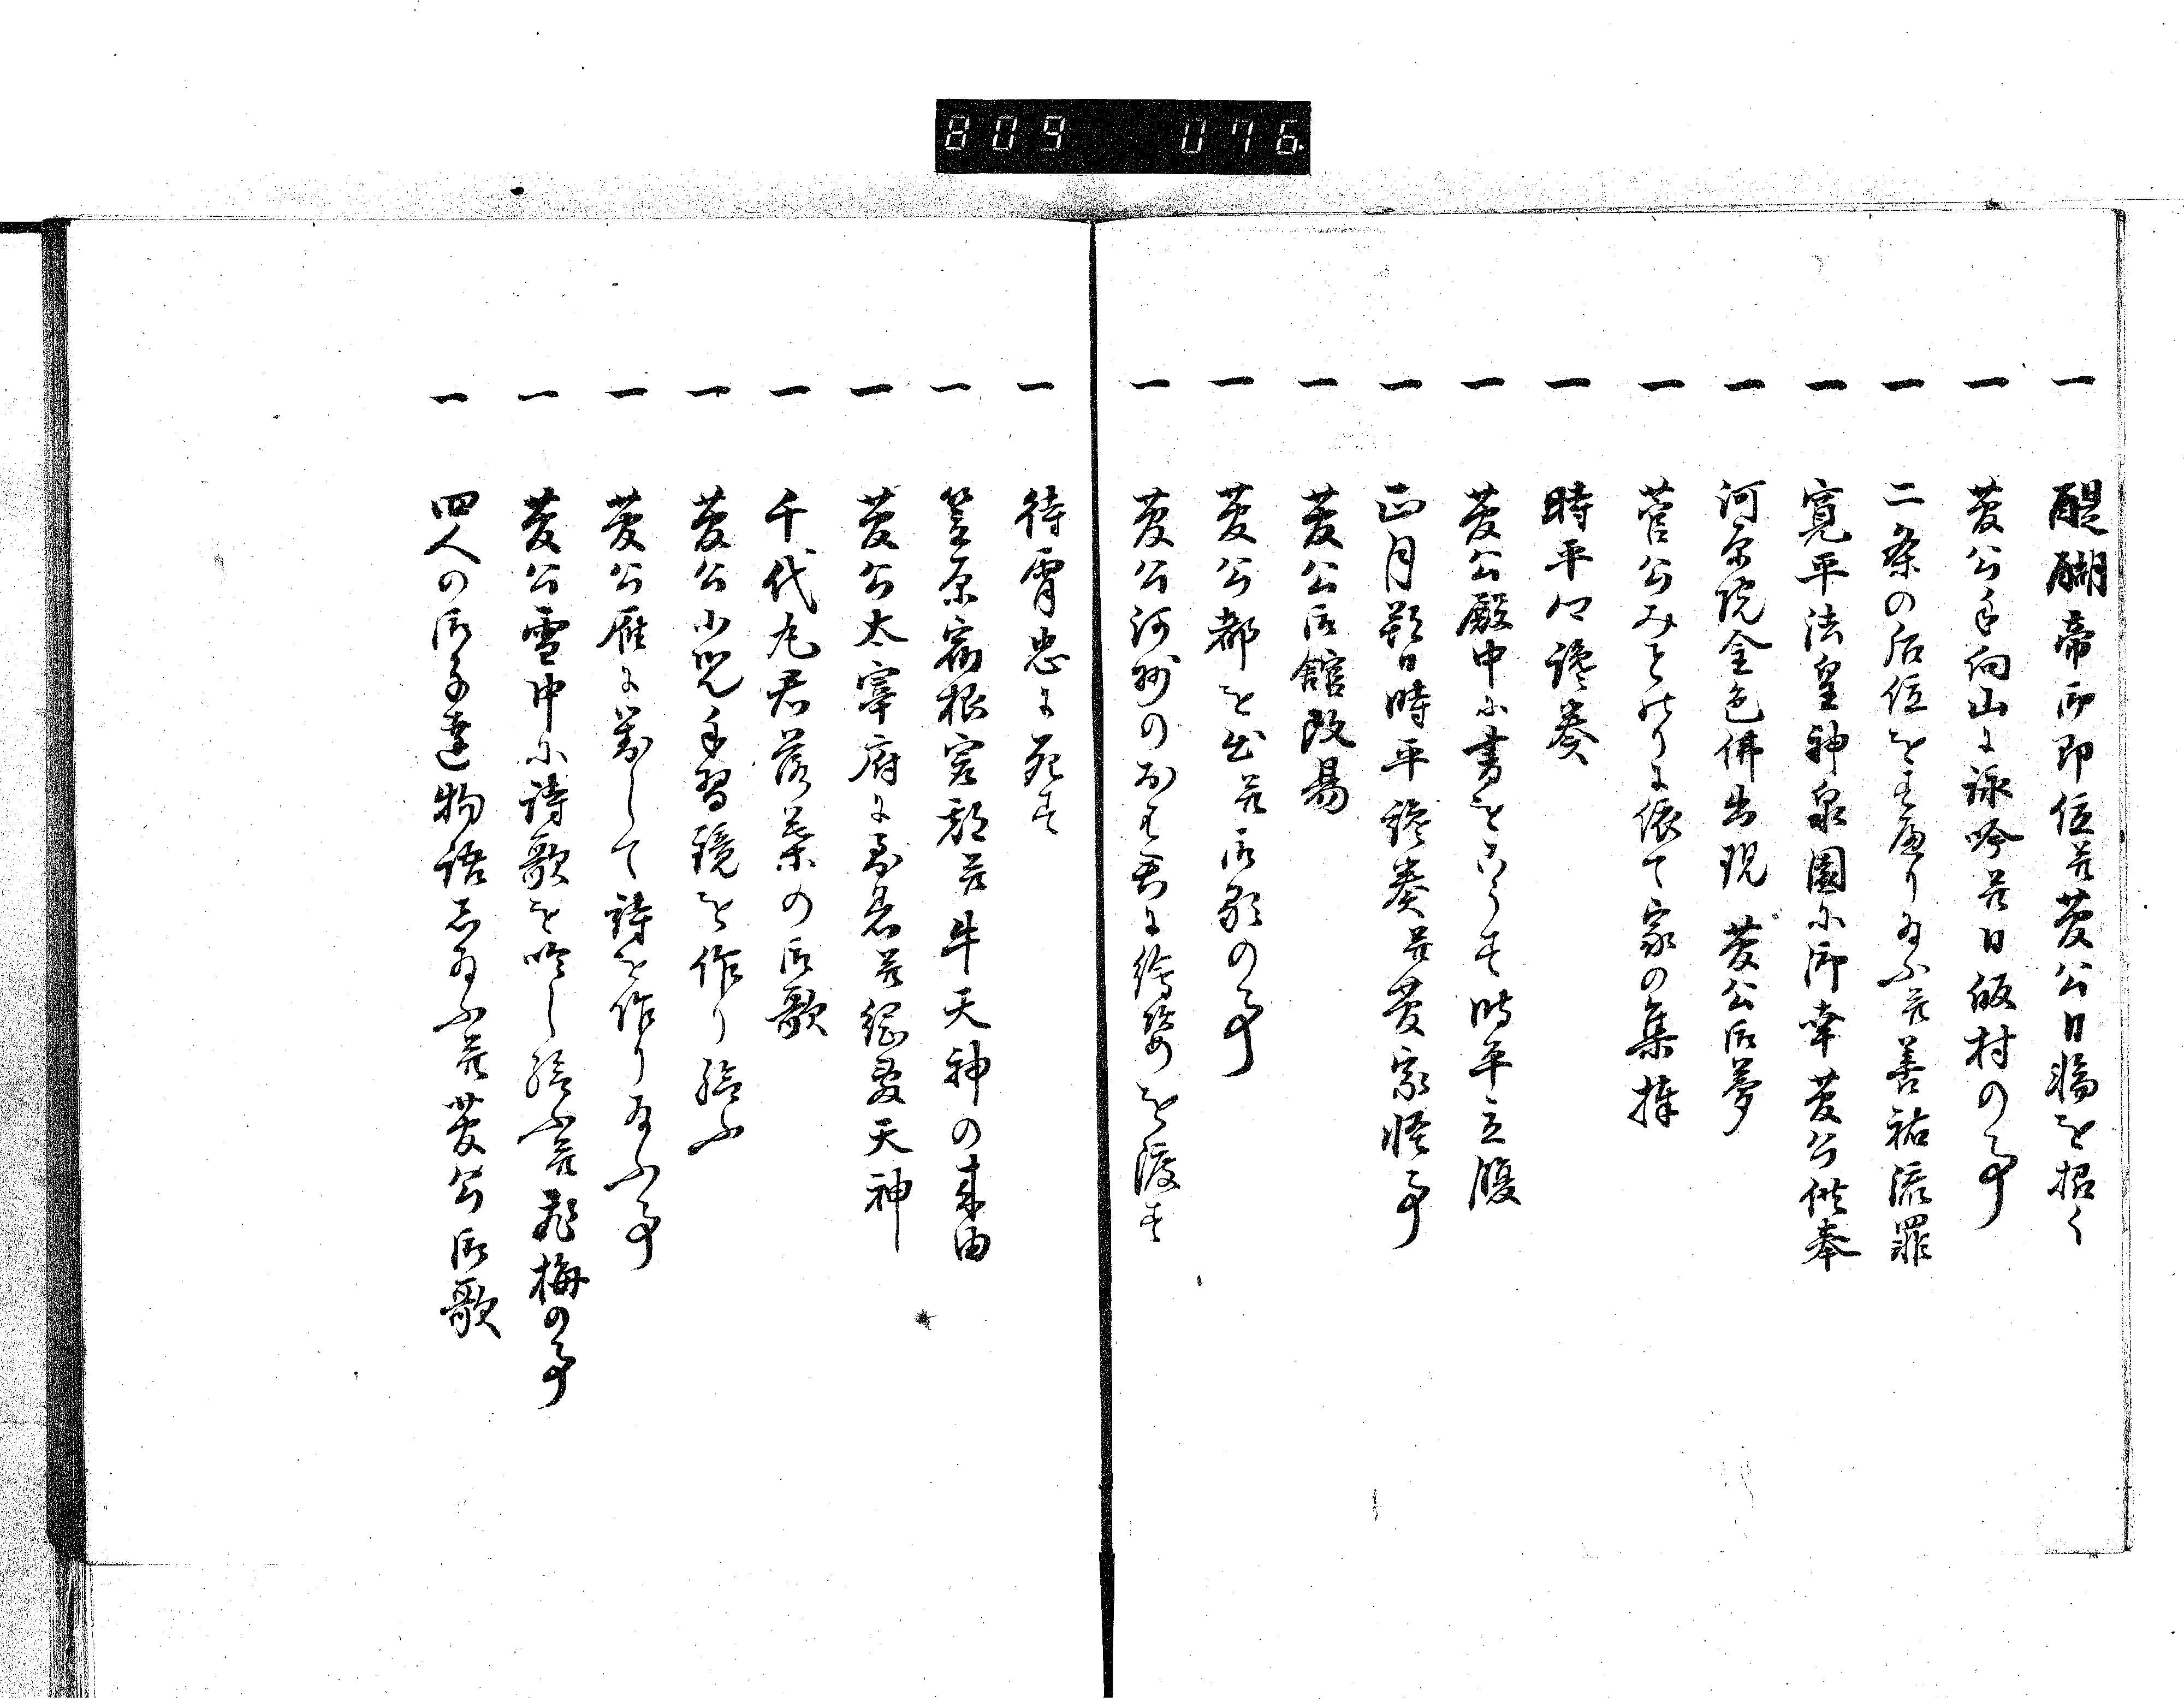 809 076.
一 醍醐帝御即位并菅公日幡を招く
一 菅公手向山に詠吟并日飯村の事
一 二条の后位をすべり給ふ并善祐流罪
一 寛平法皇神泉園に御幸菅公供奉
一 河原院金色佛出現菅公御夢
一 菅公みことのりに依て家の集捧
一 時平公讒奏
一 菅公殿中に書をかうす時平立腹
一 正月朔日時平讒奏并菅家怪事
一 菅公御館改易
一 菅公都を出并御歌の事
一 菅公河州のおば君に繪姿を渡す
一 待宵忠に死す
一 笠原宿根害并牛天神の来由
一 菅公太宰府に到着并綱敷天神
一 千代丸君落葉の御歌
一 菅公小児手習鏡を作り給ふ
一 菅公雁に対して詩を作り給ふ事
一 菅公雪中に詩歌を吟し給ふ并飛梅の事
一 四人の御子達物語し給ふ并菅公御歌